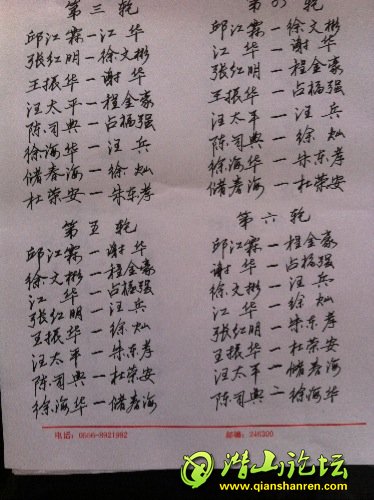 第三轮
邱江霖一江华
张红明一徐文彬
王振华一谢华
汪太平一程金豪
陈司典一占福强
徐海华一汪兵
储春海一徐灿
杜荣安一朱东孝
第四轮
邱江霖一徐文彬
江华一谢华
张红明一程金豪
王振华一占福强
汪太平一汪兵
陈司典一徐灿
徐海华一朱东孝
储春海一杜荣安
第五轮
邱江霖一谢华
徐文彬一程金豪
江华一占福强
张红明一汪兵
王振华一徐灿
汪太平一朱东孝
陈司典一杜荣安
徐海华一储春海
第六轮
邱江霖一程金豪
谢华一占福强
徐文彬一汪兵
江华一徐灿
张红明一朱东孝
王振华一杜荣安
汪太平一储春海
陈司典一徐海华
电话：0556-8921992
邮编：246300
潜山论坛
www.qianshanren.com